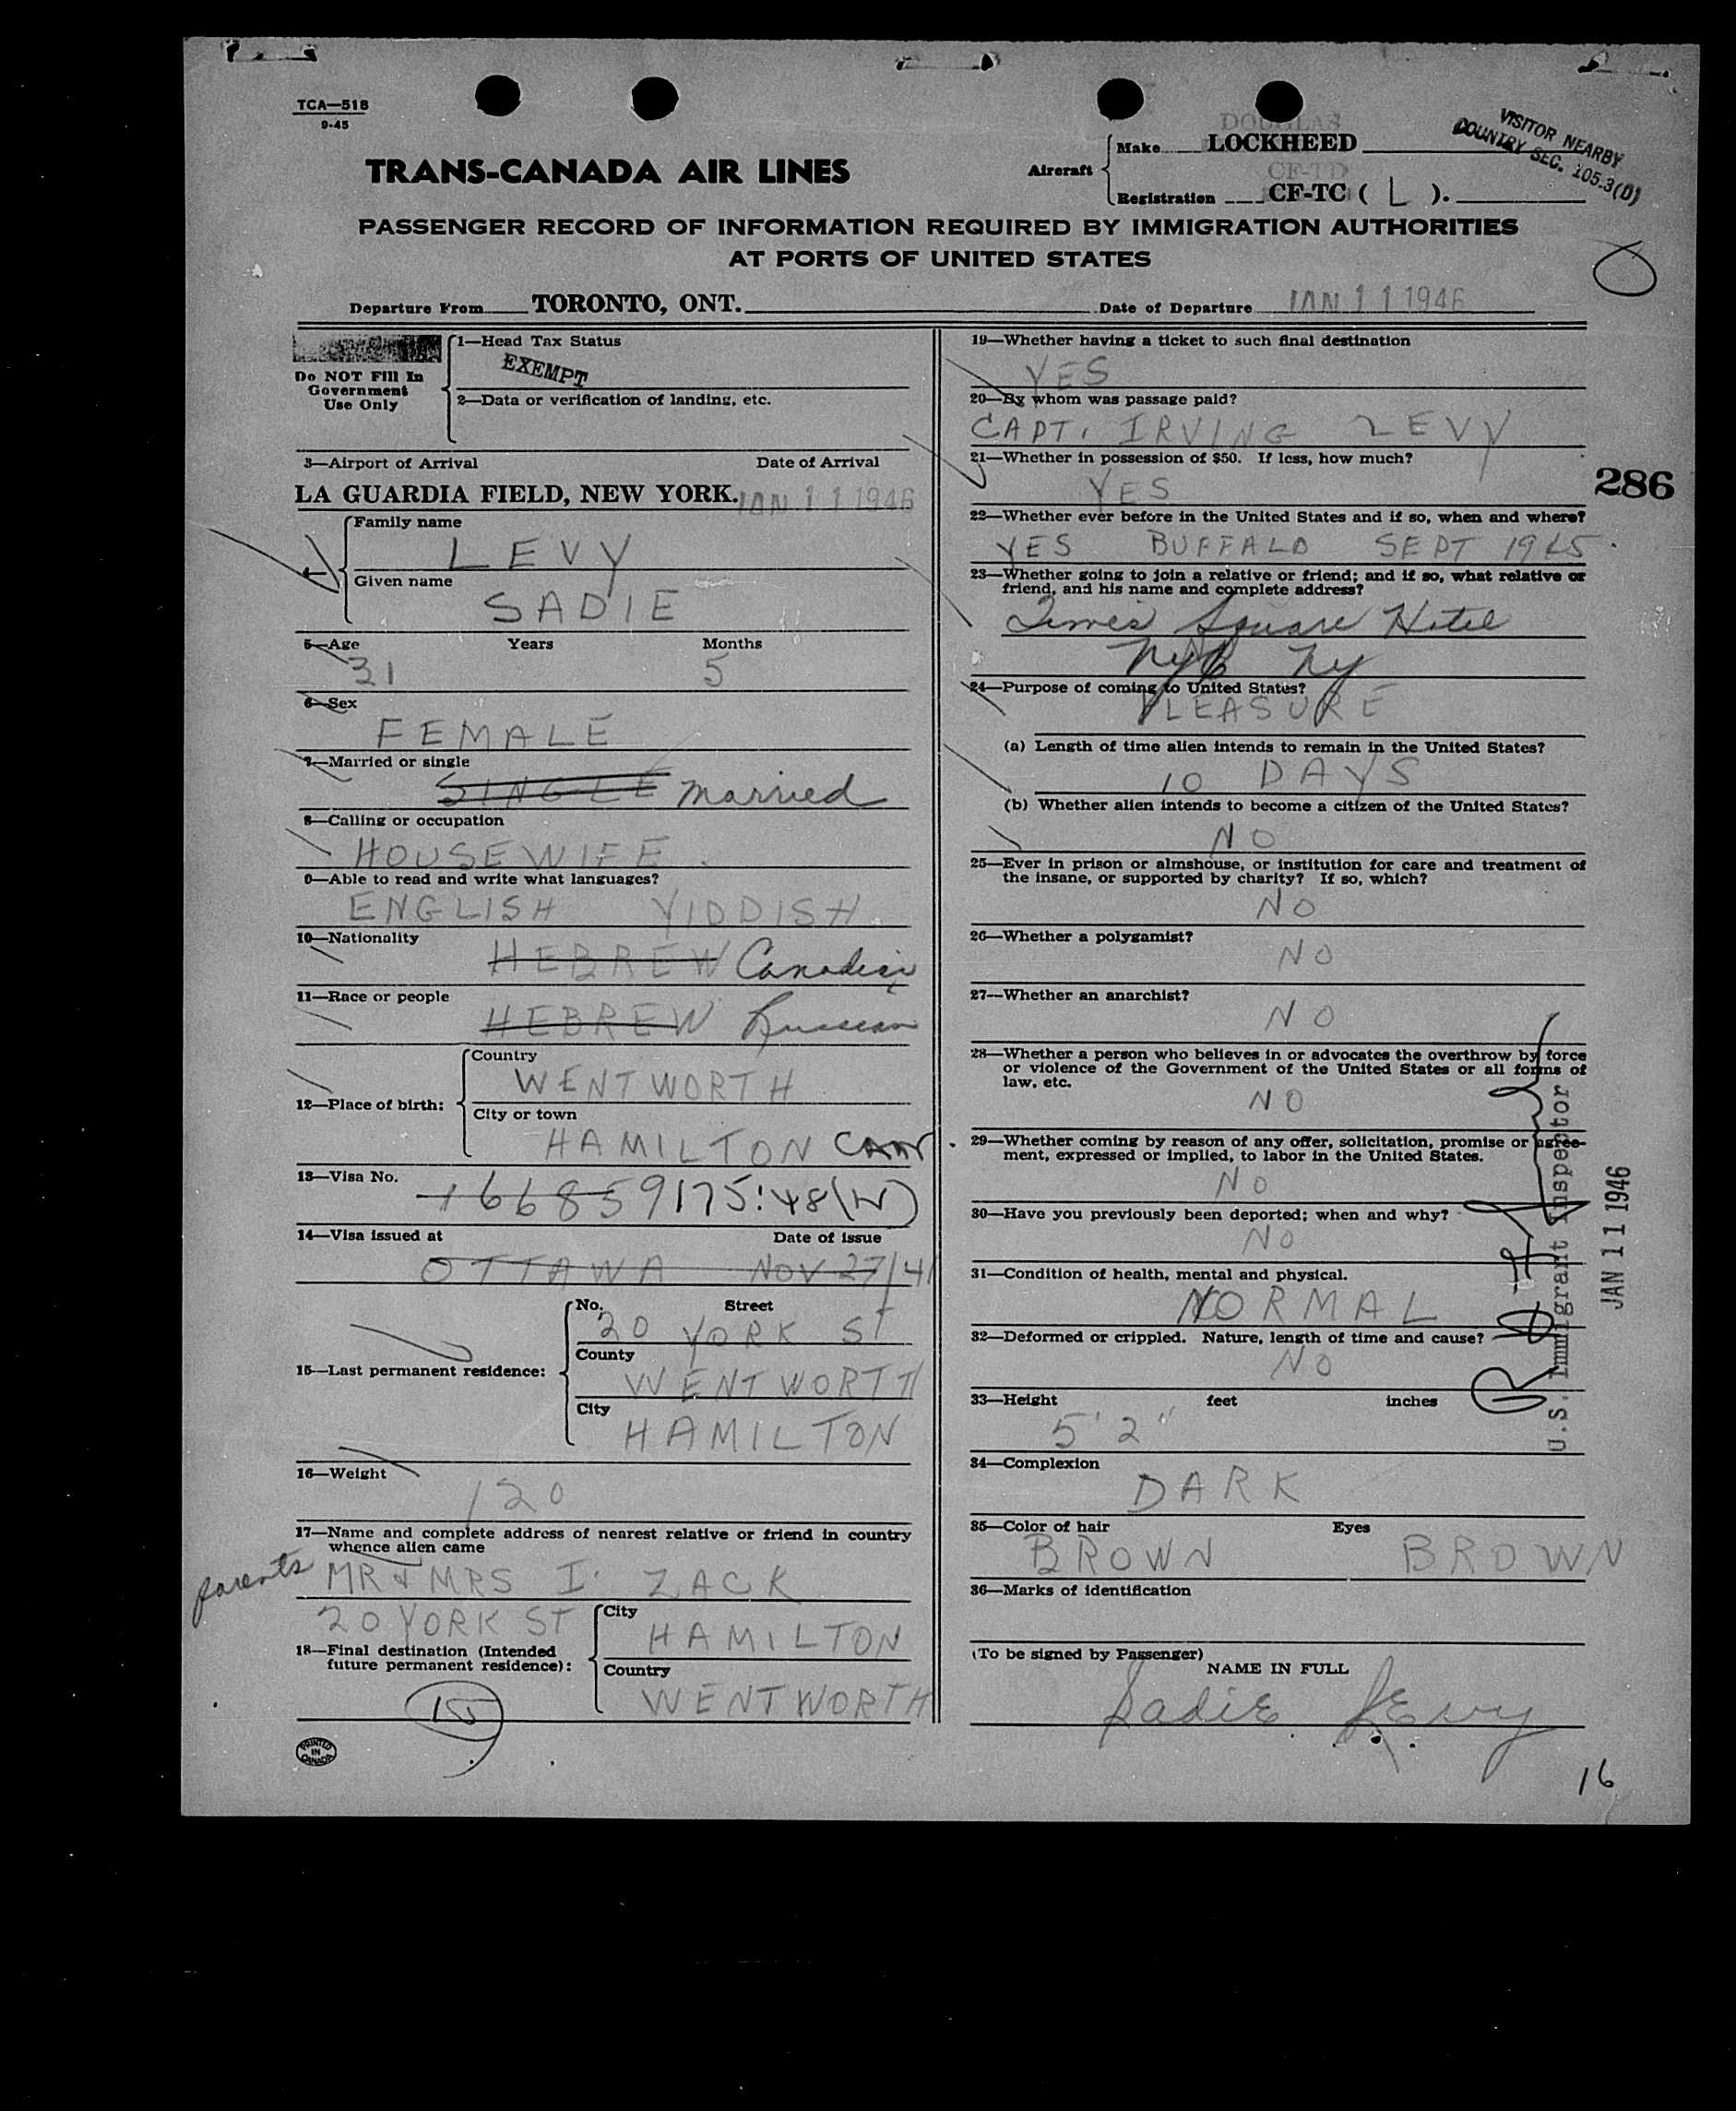 TCA—518
9-45
TRANS-CANADA AIR LINES
Aircraft
DOUGLAS
Make LOCKHEED
CF-TD
Registration CF-TC ( L ).
VISITOR NEARBY
COUNTRY SEC. 105.3(D)
PASSENGER RECORD OF INFORMATION REQUIRED BY IMMIGRATION AUTHORITIES
AT PORTS OF UNITED STATES
Departure From TORONTO, ONT. Date of Departure JAN 11 1946
Do NOT Fill In
Government
Use Only
1—Head Tax Status
EXEMPT
2—Data or verification of landing, etc.
3—Airport of Arrival Date of Arrival
LA GUARDIA FIELD, NEW YORK. JAN 11 1946
Family name
LEVY
Given name
SADIE
5—Age Years Months
31 5
6—Sex
FEMALE
7—Married or single
SINGLE Married
8—Calling or occupation
HOUSEWIFE.
9—Able to read and write what languages?
ENGLISH YIDDISH
10—Nationality
HEBREW Canadian
11—Race or people
HEBREW Russian
12—Place of birth:
Country
WENTWORTH
City or town
HAMILTON CAN.
13—Visa No.
166859 175:48(W)
14—Visa issued at Date of issue
OTTAWA NOV 27/41
15—Last permanent residence:
No. Street
20 YORK ST
County
WENTWORTH
City
HAMILTON
16—Weight
120
17—Name and complete address of nearest relative or friend in country
whence alien came
parents MR & MRS I. ZACK
20 YORK ST
18—Final destination (Intended
future permanent residence):
City
HAMILTON
Country
WENTWORTH
15
PRINTED
IN
CANADA
19—Whether having a ticket to such final destination
YES
20—By whom was passage paid?
CAPT. IRVING LEVY
21—Whether in possession of $50. If less, how much?
YES
286
22—Whether ever before in the United States and if so, when and where?
YES BUFFALO SEPT 1945.
23—Whether going to join a relative or friend; and if so, what relative or
friend, and his name and complete address?
Times Square Hotel
NYC NY
24—Purpose of coming to United States?
PLEASURE
(a) Length of time alien intends to remain in the United States?
10 DAYS
(b) Whether alien intends to become a citizen of the United States?
NO
25—Ever in prison or almshouse, or institution for care and treatment of
the insane, or supported by charity? If so, which?
NO
26—Whether a polygamist?
NO
27—Whether an anarchist?
NO
28—Whether a person who believes in or advocates the overthrow by force
or violence of the Government of the United States or all forms of
law, etc.
NO
29—Whether coming by reason of any offer, solicitation, promise or agree-
ment, expressed or implied, to labor in the United States.
NO
30—Have you previously been deported; when and why?
NO
31—Condition of health, mental and physical.
NORMAL
32—Deformed or crippled. Nature, length of time and cause?
NO
33—Height feet inches
5' 2"
34—Complexion
DARK
35—Color of hair Eyes
BROWN BROWN
36—Marks of identification
U.S. Immigrant Inspector
JAN 11 1946
(To be signed by Passenger)
NAME IN FULL
Sadie Levy
16